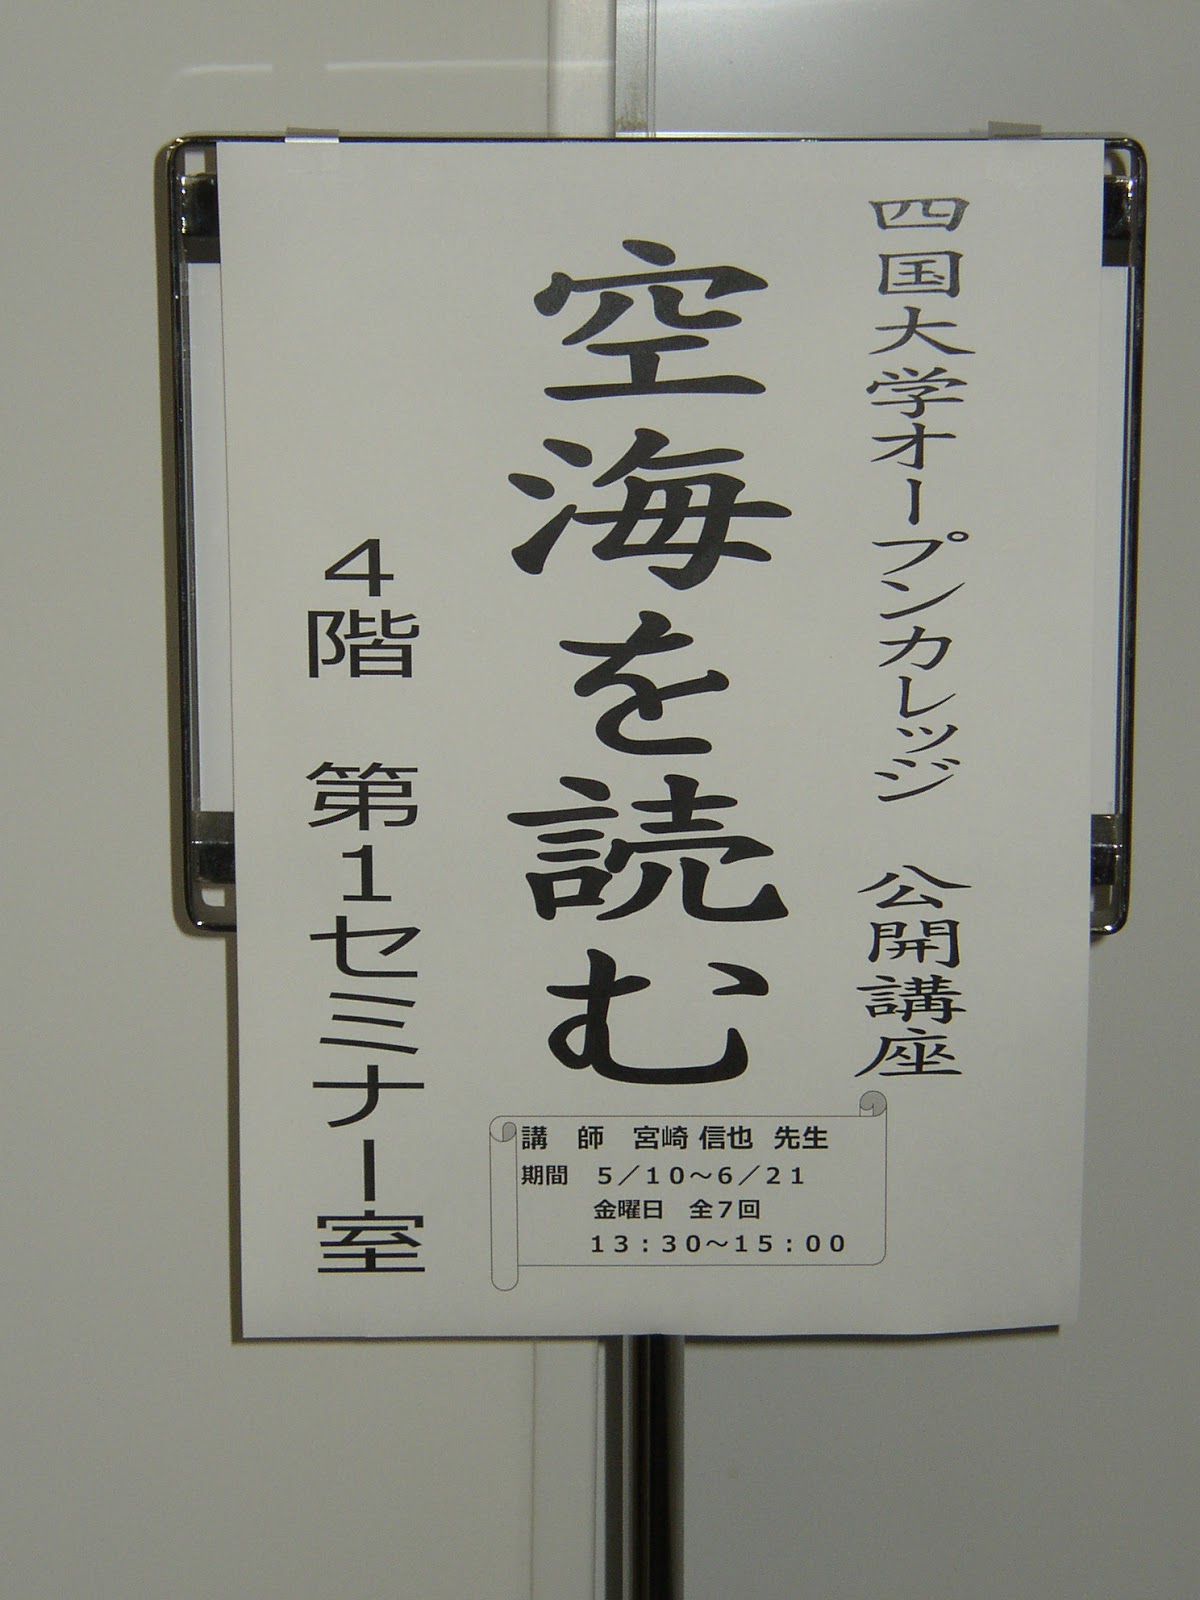 四国大学オープンカレッジ　公開講座
空海を読む
4階　第1セミナー室
講　師　宮崎 信也　先生
期間　5／10～6／21
金曜日　全7回
13：30～15：00